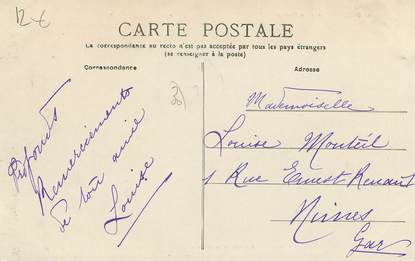 12€
CARTE POSTALE
La correspondance au recto n'est pas acceptée par tous les pays étrangers
(se renseigner à la poste)
Correspondance
Adresse
Profonds
Remerciements
de ton amie
Louise
Mademoiselle
Louise Monteil
1 Rue Ernest Renant
Nimes
Gar